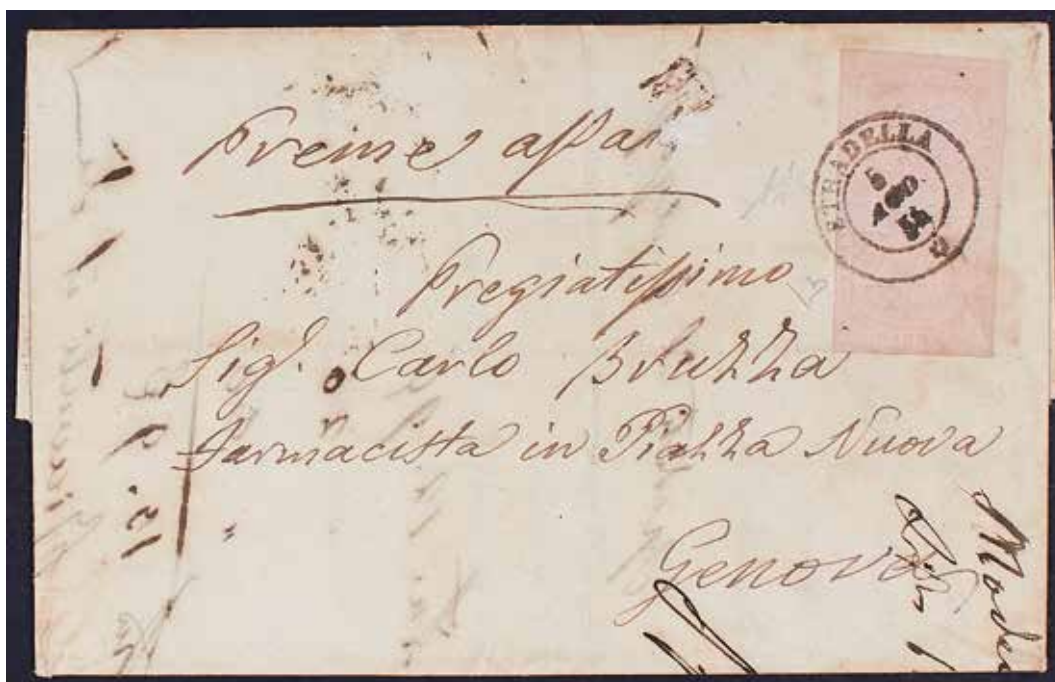 Preme assai
STRADELLA
5
AGO
54
Pregiatissimo
Sig.r Carlo Bruzza
farmacista in Piazza Nuova
Genova